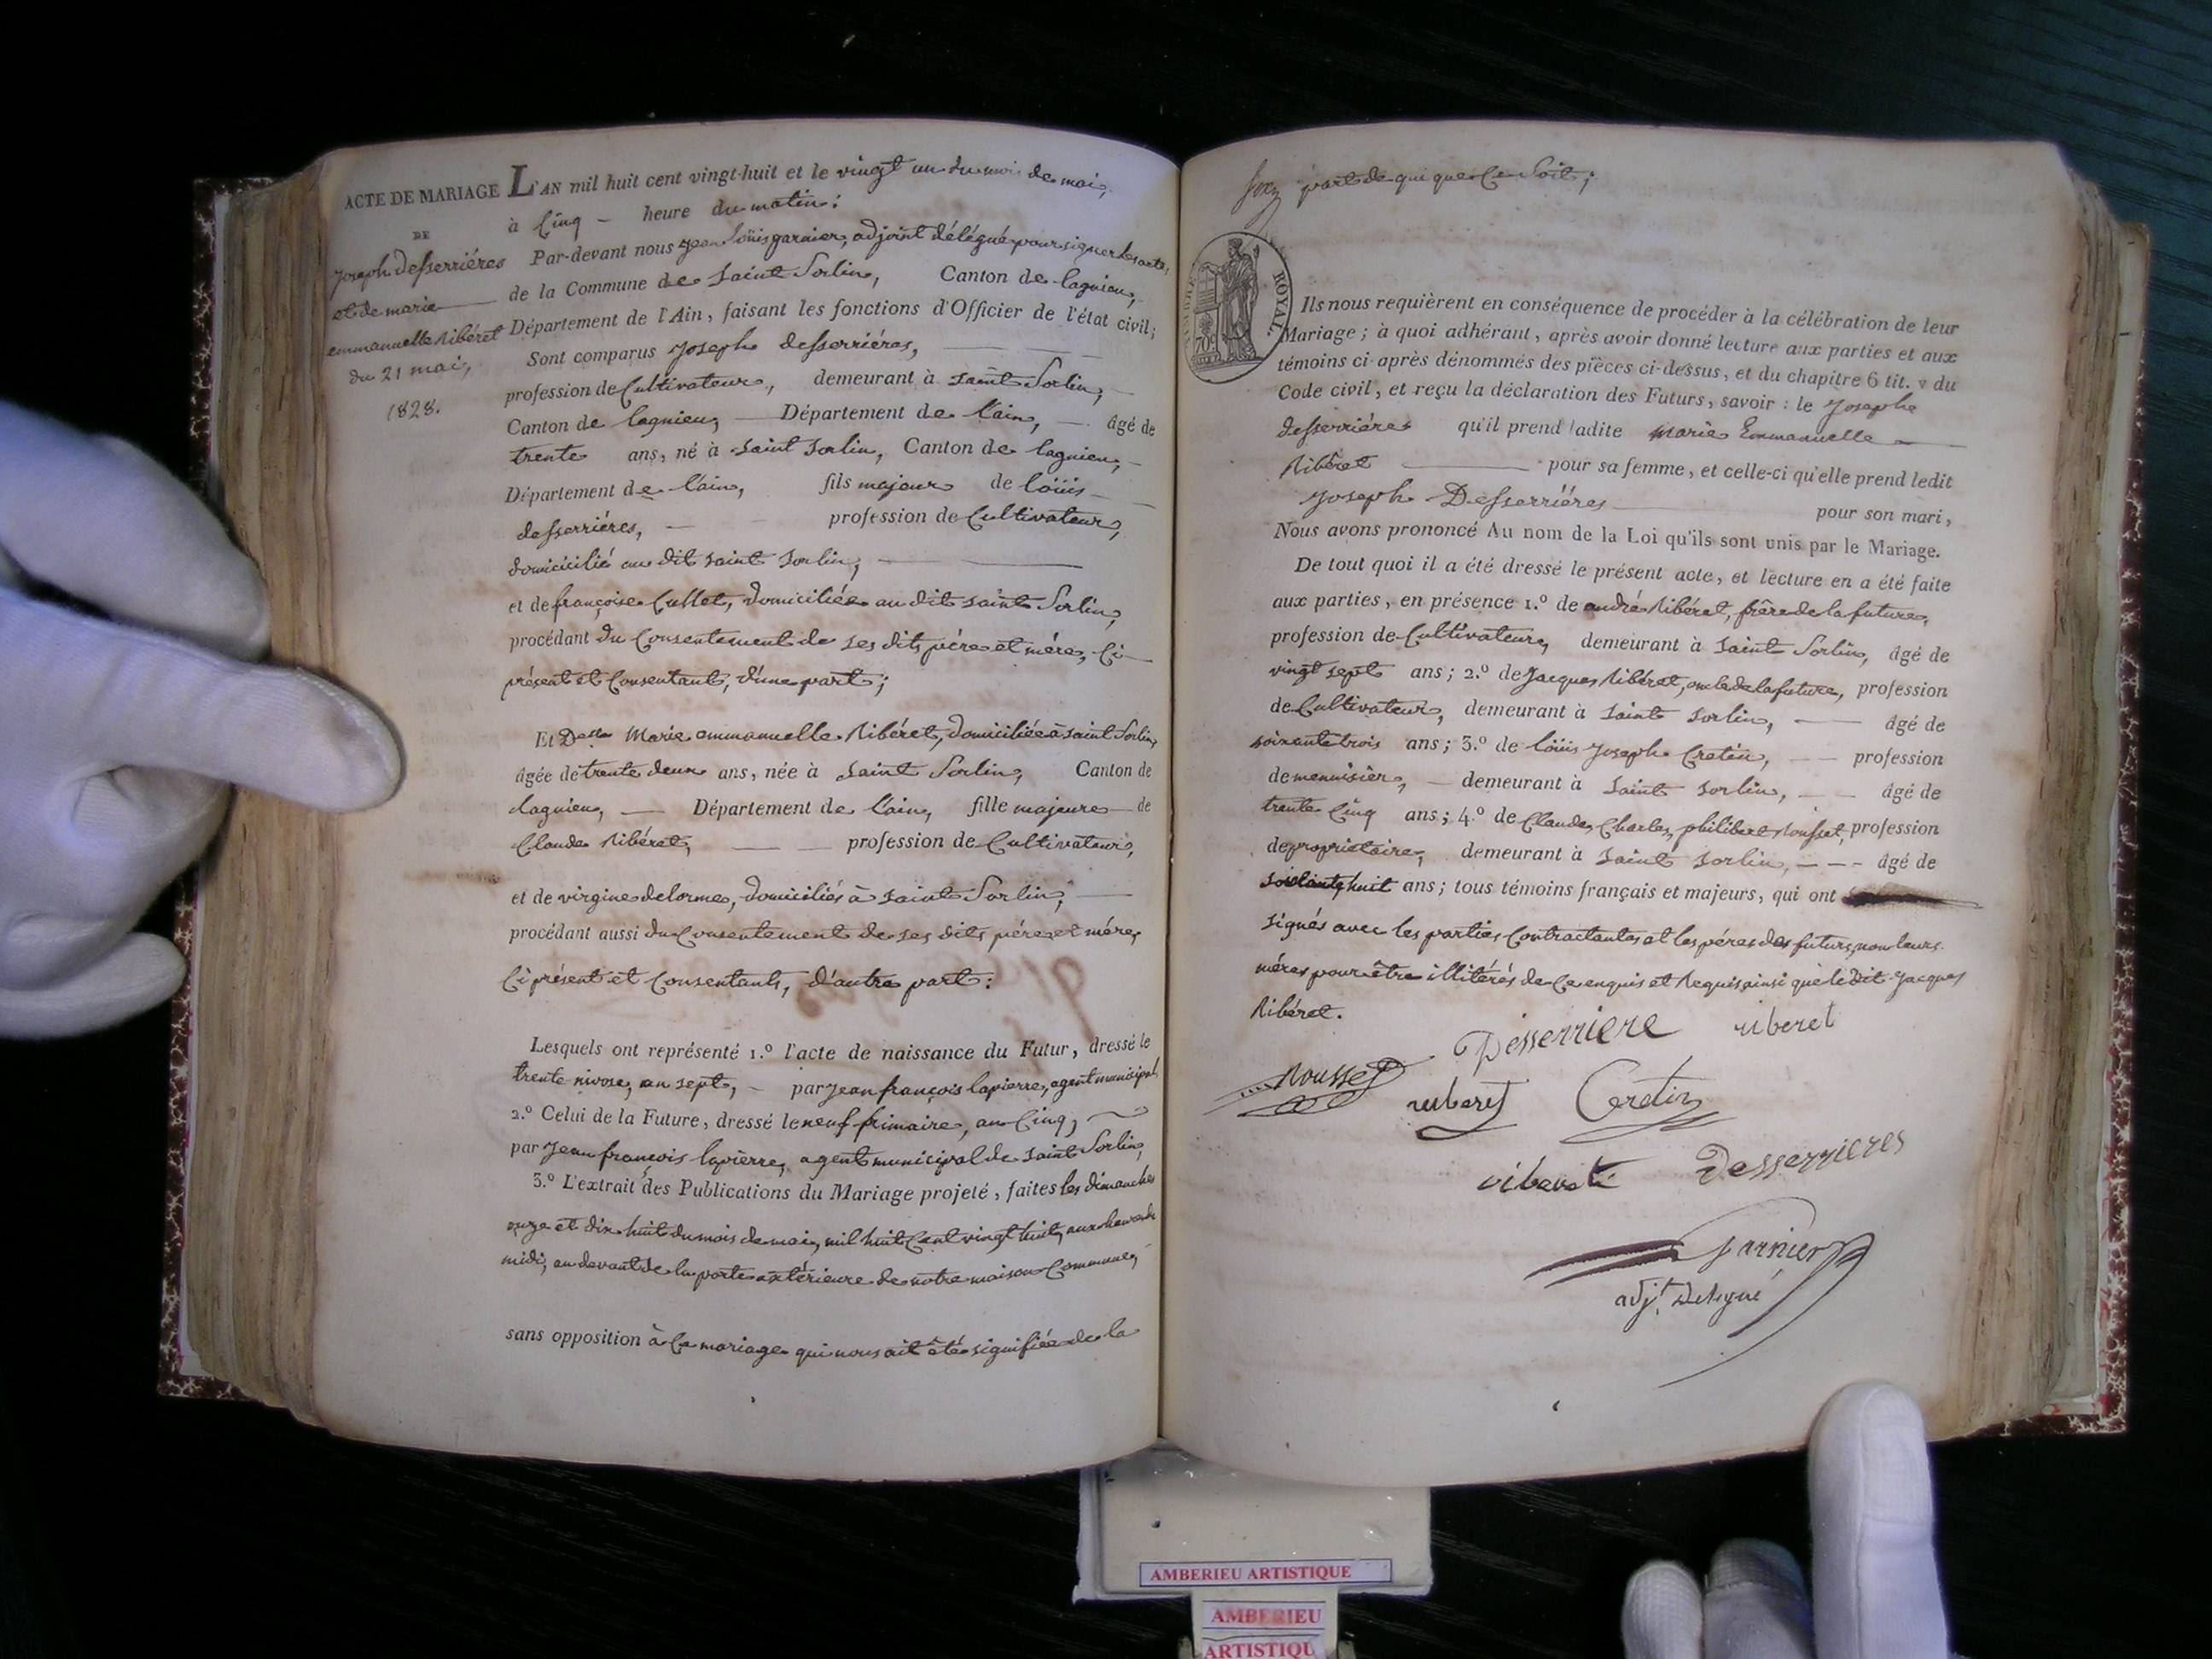 ACTE DE MARIAGE
DE
Joseph desserriéres
et de marie
emmanuelle Ribéret
du 21 mai,
1828.
L'AN mil huit cent vingt-huit et le vingt un du mois de mai,
à Cinq – heure du matin:
Par-devant nous jean Loüis garnier, adjoint délégué pour signer les actes,
de la Commune de Saint Sorlin, Canton de lagnieu,
Département de l'Ain, faisant les fonctions d'Officier de l'état civil;
Sont comparus Joseph desserriéres,
profession de Cultivateur, demeurant à saint Sorlin,
Canton de lagnieu, Département de l'ain, âgé de
trente ans, né à saint Sorlin, Canton de lagnieu,
Département de l'ain, fils majeur de loüis
desserriéres, profession de Cultivateur,
domicicilié au dit saint Sorlin,
et de françoise Cullet, domiciliée au dit saint Sorlin,
procédant du Consentement de ses dits pére et mére, Ci
présent et Consentants, d'une part;
Et Delle Marie emmanuelle Ribéret, domiciliée à saint Sorlin,
âgée de trente deux ans, née à Saint Sorlin, Canton de
lagnieu, Département de l'ain, fille majeure de
Claude Ribéret, profession de Cultivateur,
et de virgine delorme, domiciliés à saint Sorlin,
procédant aussi du Consentement de ses dits pére et mére,
Ci présent et Consentants, d'autre part:
Lesquels ont représenté 1.º l'acte de naissance du Futur, dressé le
trente nivose, an sept, – par jean françois lapierre, agent municipal,
2.º Celui de la Future, dressé le neuf frimaire, an Cinq,
par Jean françois lapierre, agent municipal de saint Sorlin,
3.º L'extrait des Publications du Mariage projeté, faites les dimanches
onze et dix huit du mois de mai, mil huit Cent vingt huit, aux heures de
midi, au devant de la porte extérieure de notre maison Commune,
sans opposition à Ce mariage qui nous ait été signifiée de la
part de qui que Ce Soit;
TIMBRE ROYAL
70c
Ils nous requièrent en conséquence de procéder à la célébration de leur
Mariage; à quoi adhérant, après avoir donné lecture aux parties et aux
témoins ci-après dénommés des pièces ci-dessus, et du chapitre 6 tit. v du
Code civil, et reçu la déclaration des Futurs, savoir: le Joseph
desserriéres qu'il prend ladite Marie Emmanuelle
Ribéret pour sa femme, et celle-ci qu'elle prend ledit
Joseph Desserriéres pour son mari,
Nous avons prononcé Au nom de la Loi qu'ils sont unis par le Mariage.
De tout quoi il a été dressé le présent acte, et lecture en a été faite
aux parties, en présence 1.º de andré Ribéret, frére de la future,
profession de Cultivateur, demeurant à Saint Sorlin, âgé de
vingt sept ans; 2.º de Jacques Ribéret, oncle de la future, profession
de Cultivateur, demeurant à Saint Sorlin, âgé de
soixante trois ans; 3.º de loüis Joseph Cretin, profession
de menuisier, demeurant à Saint Sorlin, âgé de
trente Cinq ans; 4.º de Claude, Charles, philibert Rousset, profession
de propriétaire, demeurant à Saint Sorlin, âgé de
Soixante huit ans; tous témoins français et majeurs, qui ont
signés avec les parties Contractantes et les péres des futurs, non leurs
méres pour être illitérés de Ce enquis et Requis ainsi que le dit Jacques
Ribéret.
Desserriere riberet
Rousset riberet Cretin
riberet Desserrieres
Garnier
adjt Délégué
AMBERIEU ARTISTIQUE
AMBERIEU
ARTISTIQU